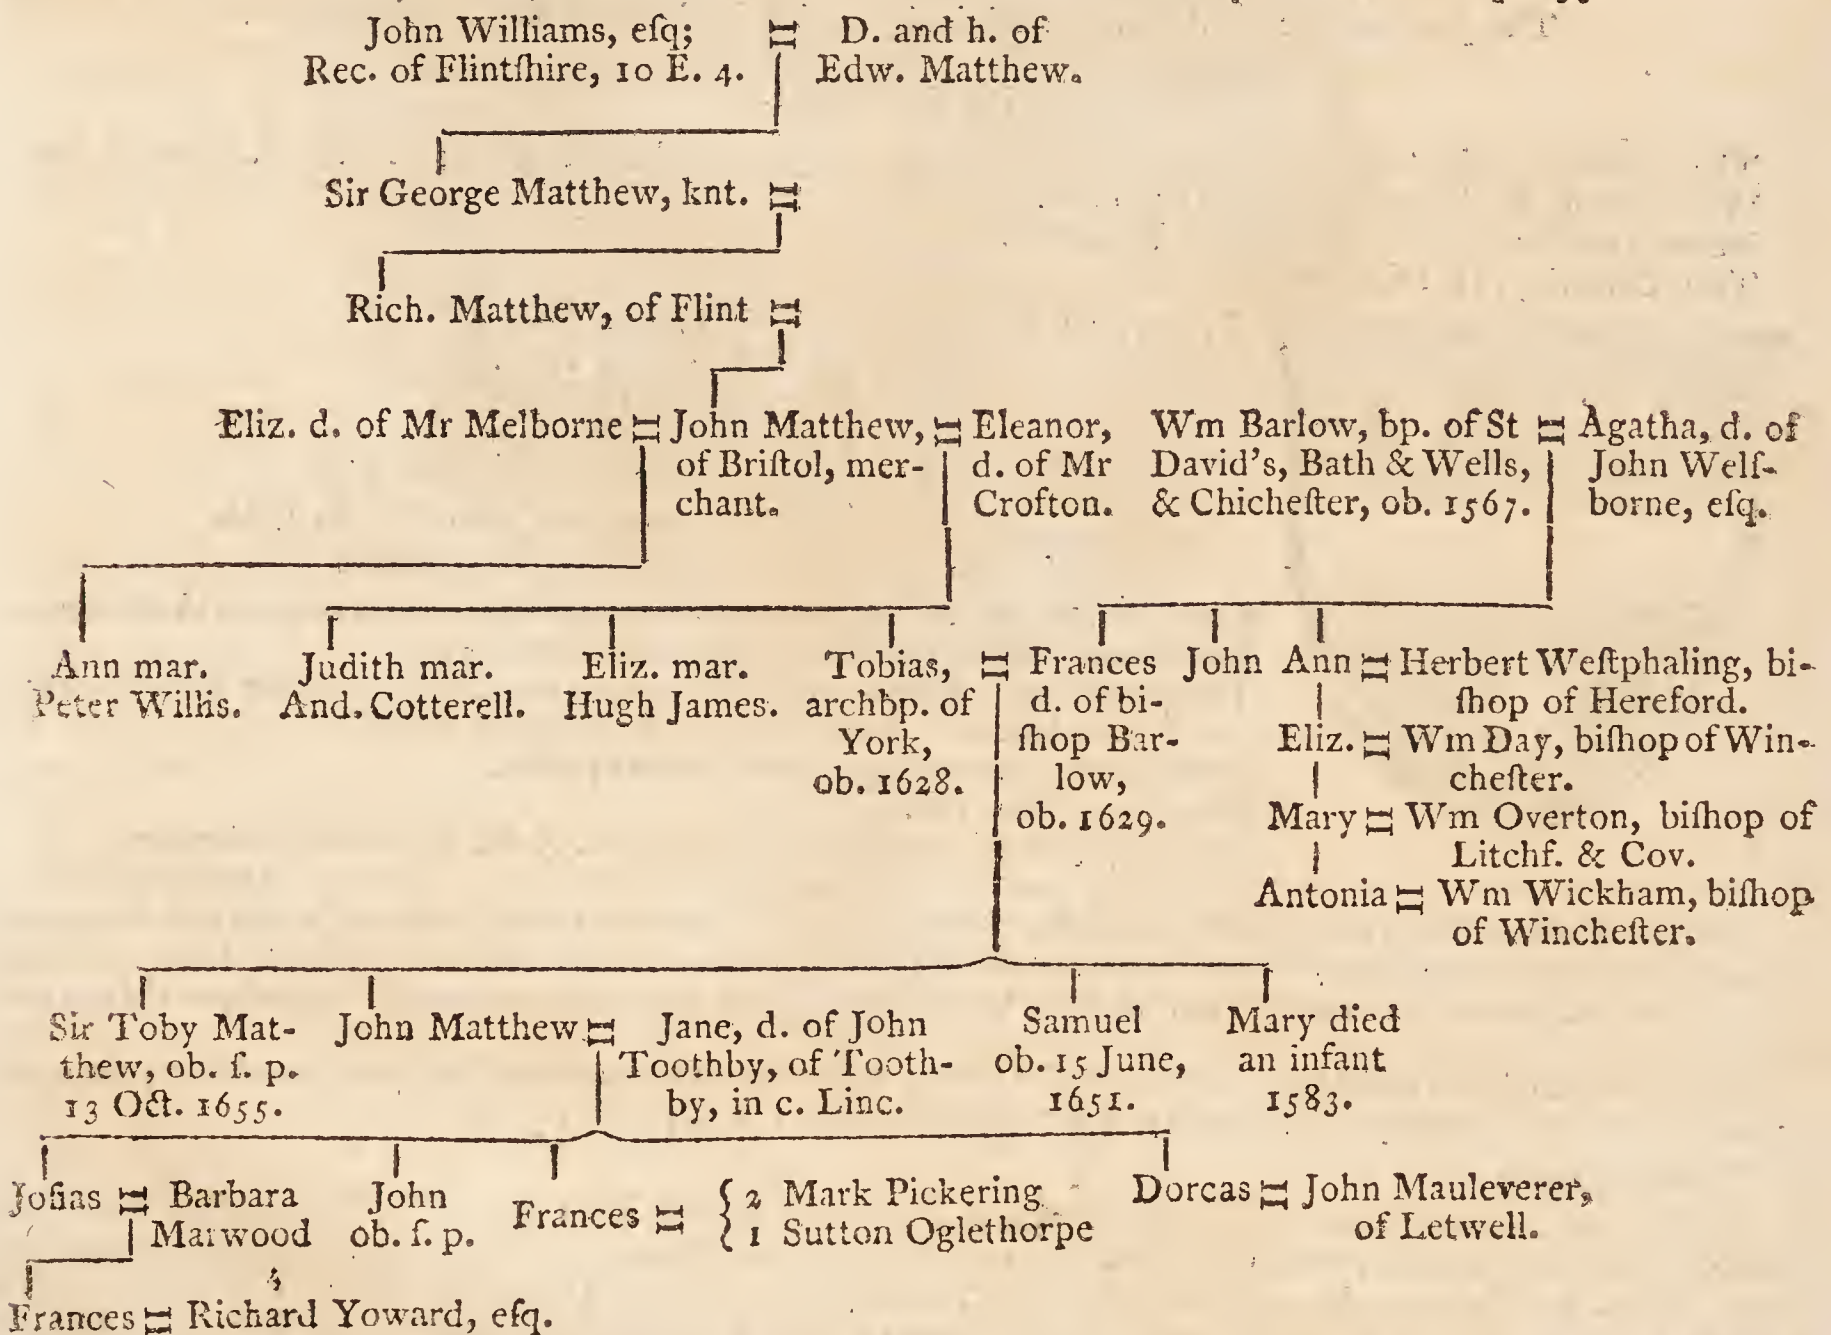 John Williams, eſq;
Rec. of Flintſhire, 10 E. 4.
D. and h. of
Edw. Matthew.
Sir George Matthew, knt.
Rich. Matthew, of Flint
Eliz. d. of Mr Melborne
John Matthew,
of Briſtol, mer-
chant.
Eleanor,
d. of Mr
Crofton.
Wm Barlow, bp. of St
David's, Bath & Wells,
& Chicheſter, ob. 1567.
Agatha, d. of
John Welſ-
borne, eſq.
Ann mar.
Peter Willis.
Judith mar.
And. Cotterell.
Eliz. mar.
Hugh James.
Tobias,
archbp. of
York,
ob. 1628.
Frances
d. of bi-
ſhop Bar-
low,
ob. 1629.
John
Ann
Herbert Weſtphaling, bi-
ſhop of Hereford.
Eliz.
Wm Day, biſhop of Win-
cheſter.
Mary
Wm Overton, biſhop of
Litchf. & Cov.
Antonia
Wm Wickham, biſhop
of Wincheſter.
Sir Toby Mat-
thew, ob. ſ. p.
13 Oct. 1655.
John Matthew
Jane, d. of John
Toothby, of Tooth-
by, in c. Linc.
Samuel
ob. 15 June,
1651.
Mary died
an infant
1583.
Joſias
Barbara
Marwood
John
ob. ſ. p.
Frances
{ 2 Mark Pickering
{ 1 Sutton Oglethorpe
Dorcas
John Mauleverer,
of Letwell.
Frances
Richard Yoward, eſq.